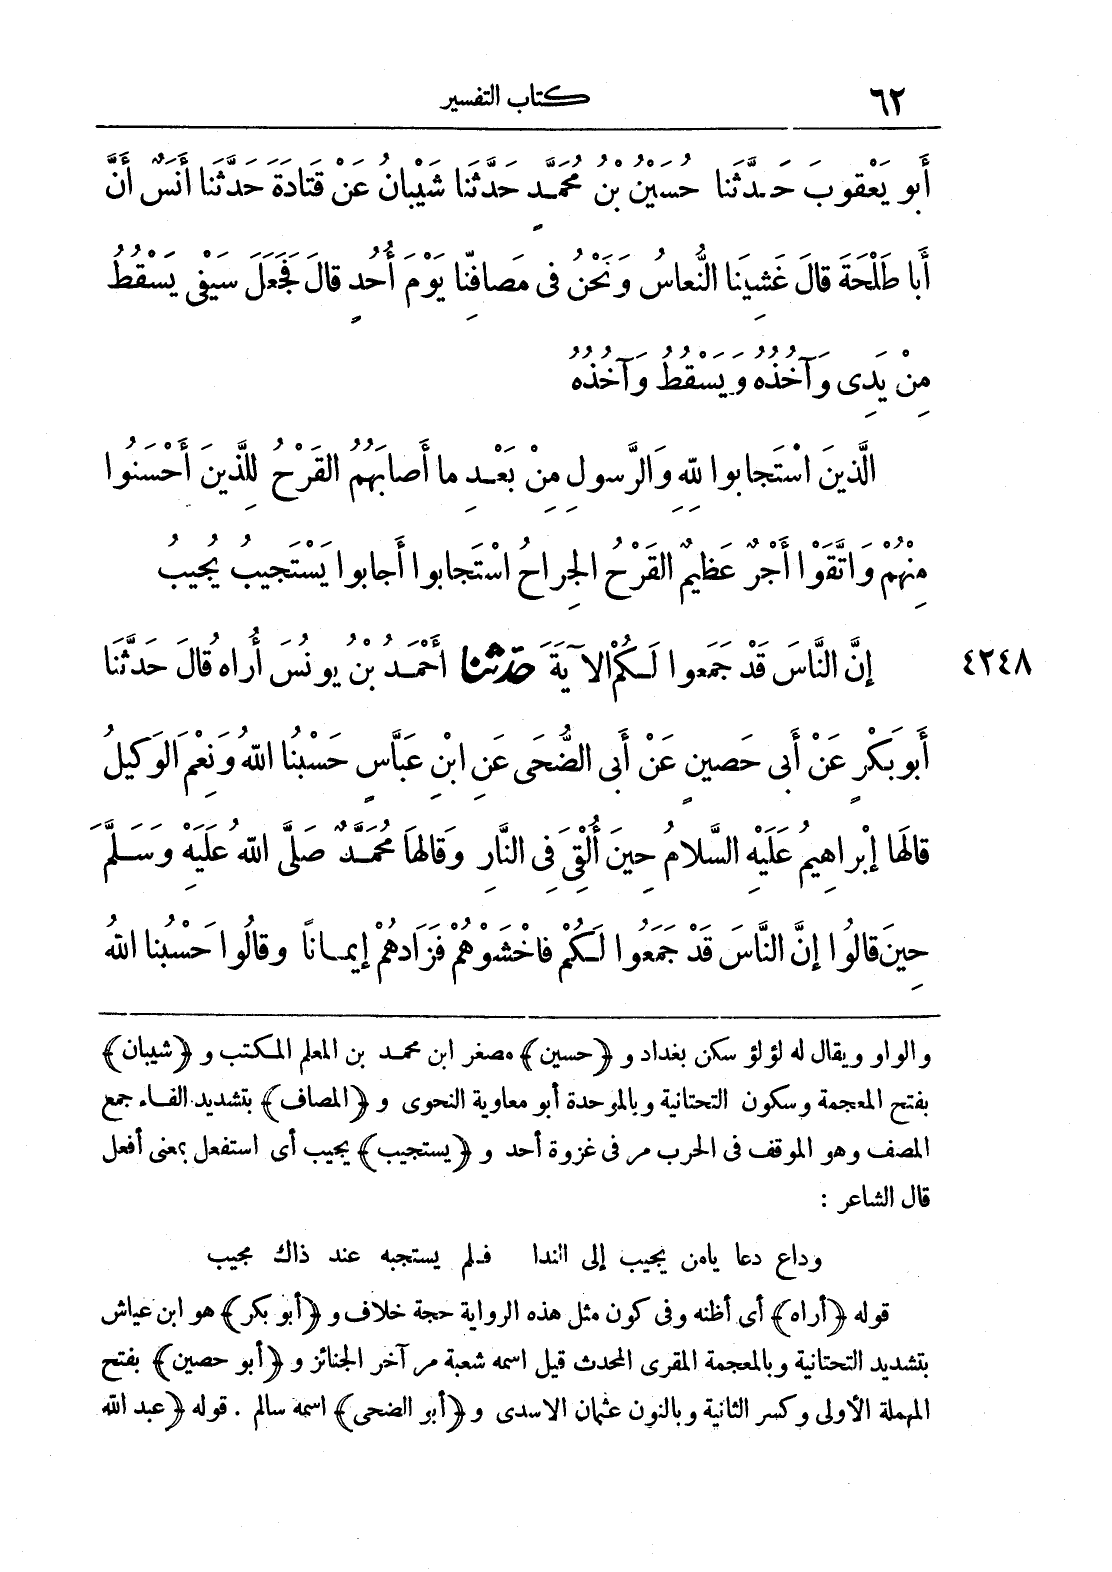 ٦٢
كتاب التفسير
أَبو يَعْقوبَ حَدَّثَنا حُسَيْنُ بْنُ مُحَمَّدٍ حَدَّثَنا شَيْبانُ عَنْ قَتادَةَ حَدَّثَنا أَنَسٌ أَنَّ
أَبا طَلْحَةَ قالَ غَشِيَنا النُّعاسُ وَنَحْنُ فى مَصافِّنا يَوْمَ أُحُدٍ قالَ فَجَعَلَ سَيْفى يَسْقُطُ
مِنْ يَدِى وَآخُذُهُ وَيَسْقُطُ وَآخُذُهُ
الَّذينَ اسْتَجابوا لِلّهِ وَالرَّسولِ مِنْ بَعْدِ ما أَصابَهُمُ القَرْحُ لِلَّذينَ أَحْسَنُوا
مِنْهُمْ وَاتَّقَوْا أَجْرٌ عَظيمٌ القَرْحُ الجِراحُ اسْتَجابوا أَجابوا يَسْتَجيبُ يُجيبُ
إنَّ النَّاسَ قَدْ جَمَعوا لَكُمْ الآيَةَ حَدَّثنا أَحْمَدُ بْنُ يونُسَ أُراه قالَ حَدَّثَنا
٤٢٤٨
أَبوبَكْرٍ عَنْ أَبى حَصينٍ عَنْ أَبى الضُّحَى عَنِ ابْنِ عَبَّاسٍ حَسْبُنا اللهُ وَنِعْمَ الوَكيلُ
قالَها إبْراهيمُ عَلَيْهِ السَّلامُ حِينَ أُلْقِىَ فِى النَّارِ وَقالَها مُحَمَّدٌ صَلَّى اللهُ عَلَيْهِ وَسَلَّمَ
حِينَ قالُوا إنَّ النَّاسَ قَدْ جَمَعُوا لَكُمْ فاخْشَوْهُمْ فَزَادهُمْ إيمانًا وقالُوا حَسْبُنا اللهُ
والواو ويقال له لؤلؤ سكن بغداد و ﴿حسين﴾ مصغر ابن محمد بن المعلم المكتب و ﴿شيبان﴾
بفتح المعجمة وسكون التحتانية وبالموحدة أبو معاوية النحوى و ﴿المصاف﴾ بتشديد الفاء جمع
المصف وهو الموقف فى الحرب مر فى غزوة أحد و ﴿يستجيب﴾ يجيب أى استفعل بمعنى أفعل
قال الشاعر :
وداع دعا يامن يجيب إلى الندا فلم يستجبه عند ذاك مجيب
قوله ﴿أراه﴾ أى أظنه وفى كون مثل هذه الرواية حجة خلاف و ﴿أبو بكر﴾ هو ابن عياش
بتشديد التحتانية وبالمعجمة المقرى المحدث قيل اسمه شعبة مر آخر الجنائز و ﴿أبو حصين﴾ بفتح
المهملة الأولى وكسر الثانية وبالنون عثمان الاسدى و ﴿أبو الضحى﴾ اسمه سالم . قوله ﴿عبد الله